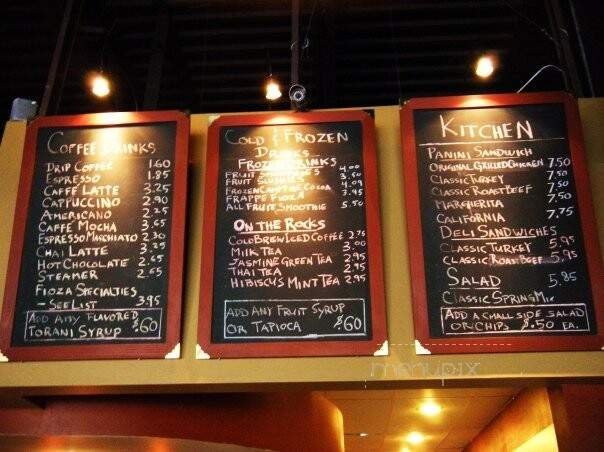 COFFEE DRINKS
DRIP COFFEE 1.60
ESPRESSO 1.85
CAFFÉ LATTE 3.25
CAPPUCCINO 2.90
AMERICANO 2.25
CAFFE MOCHA 3.65
ESPRESSO MACCHIATO 2.30
CHAI LATTE 3.25
HOT CHOCOLATE 2.65
STEAMER 2.65
FIOZA SPECIALTIES
- SEE LIST 3.95
ADD ANY FLAVORED
TORANI SYRUP $.60
COLD & FROZEN
DRINKS
FROZEN DRINKS
FRUIT 4.00
FRUIT 3.50
FROZEN CAPP OR COCOA 4.09
FRAPPE FIOZA 3.95
ALL FRUIT SMOOTHIE 5.50
ON THE ROCKS
COLD BREW ICED COFFEE 2.75
MILK TEA 3.00
JASMINE GREEN TEA 2.95
THAI TEA 2.95
HIBISCUS MINT TEA 2.95
ADD ANY FRUIT SYRUP
OR TAPIOCA $.60
KITCHEN
PANINI SANDWICH
ORIGINAL GRILLED CHICKEN 7.50
CLASSIC TURKEY 7.50
CLASSIC ROAST BEEF 7.50
MARGHERITA 7.50
CALIFORNIA 7.75
DELI SANDWICHES
CLASSIC TURKEY 5.95
CLASSIC ROAST BEEF 5.95
SALAD 5.85
CLASSIC SPRING MIX
ADD A SMALL SIDE SALAD
OR CHIPS $.50 EA.
menupix